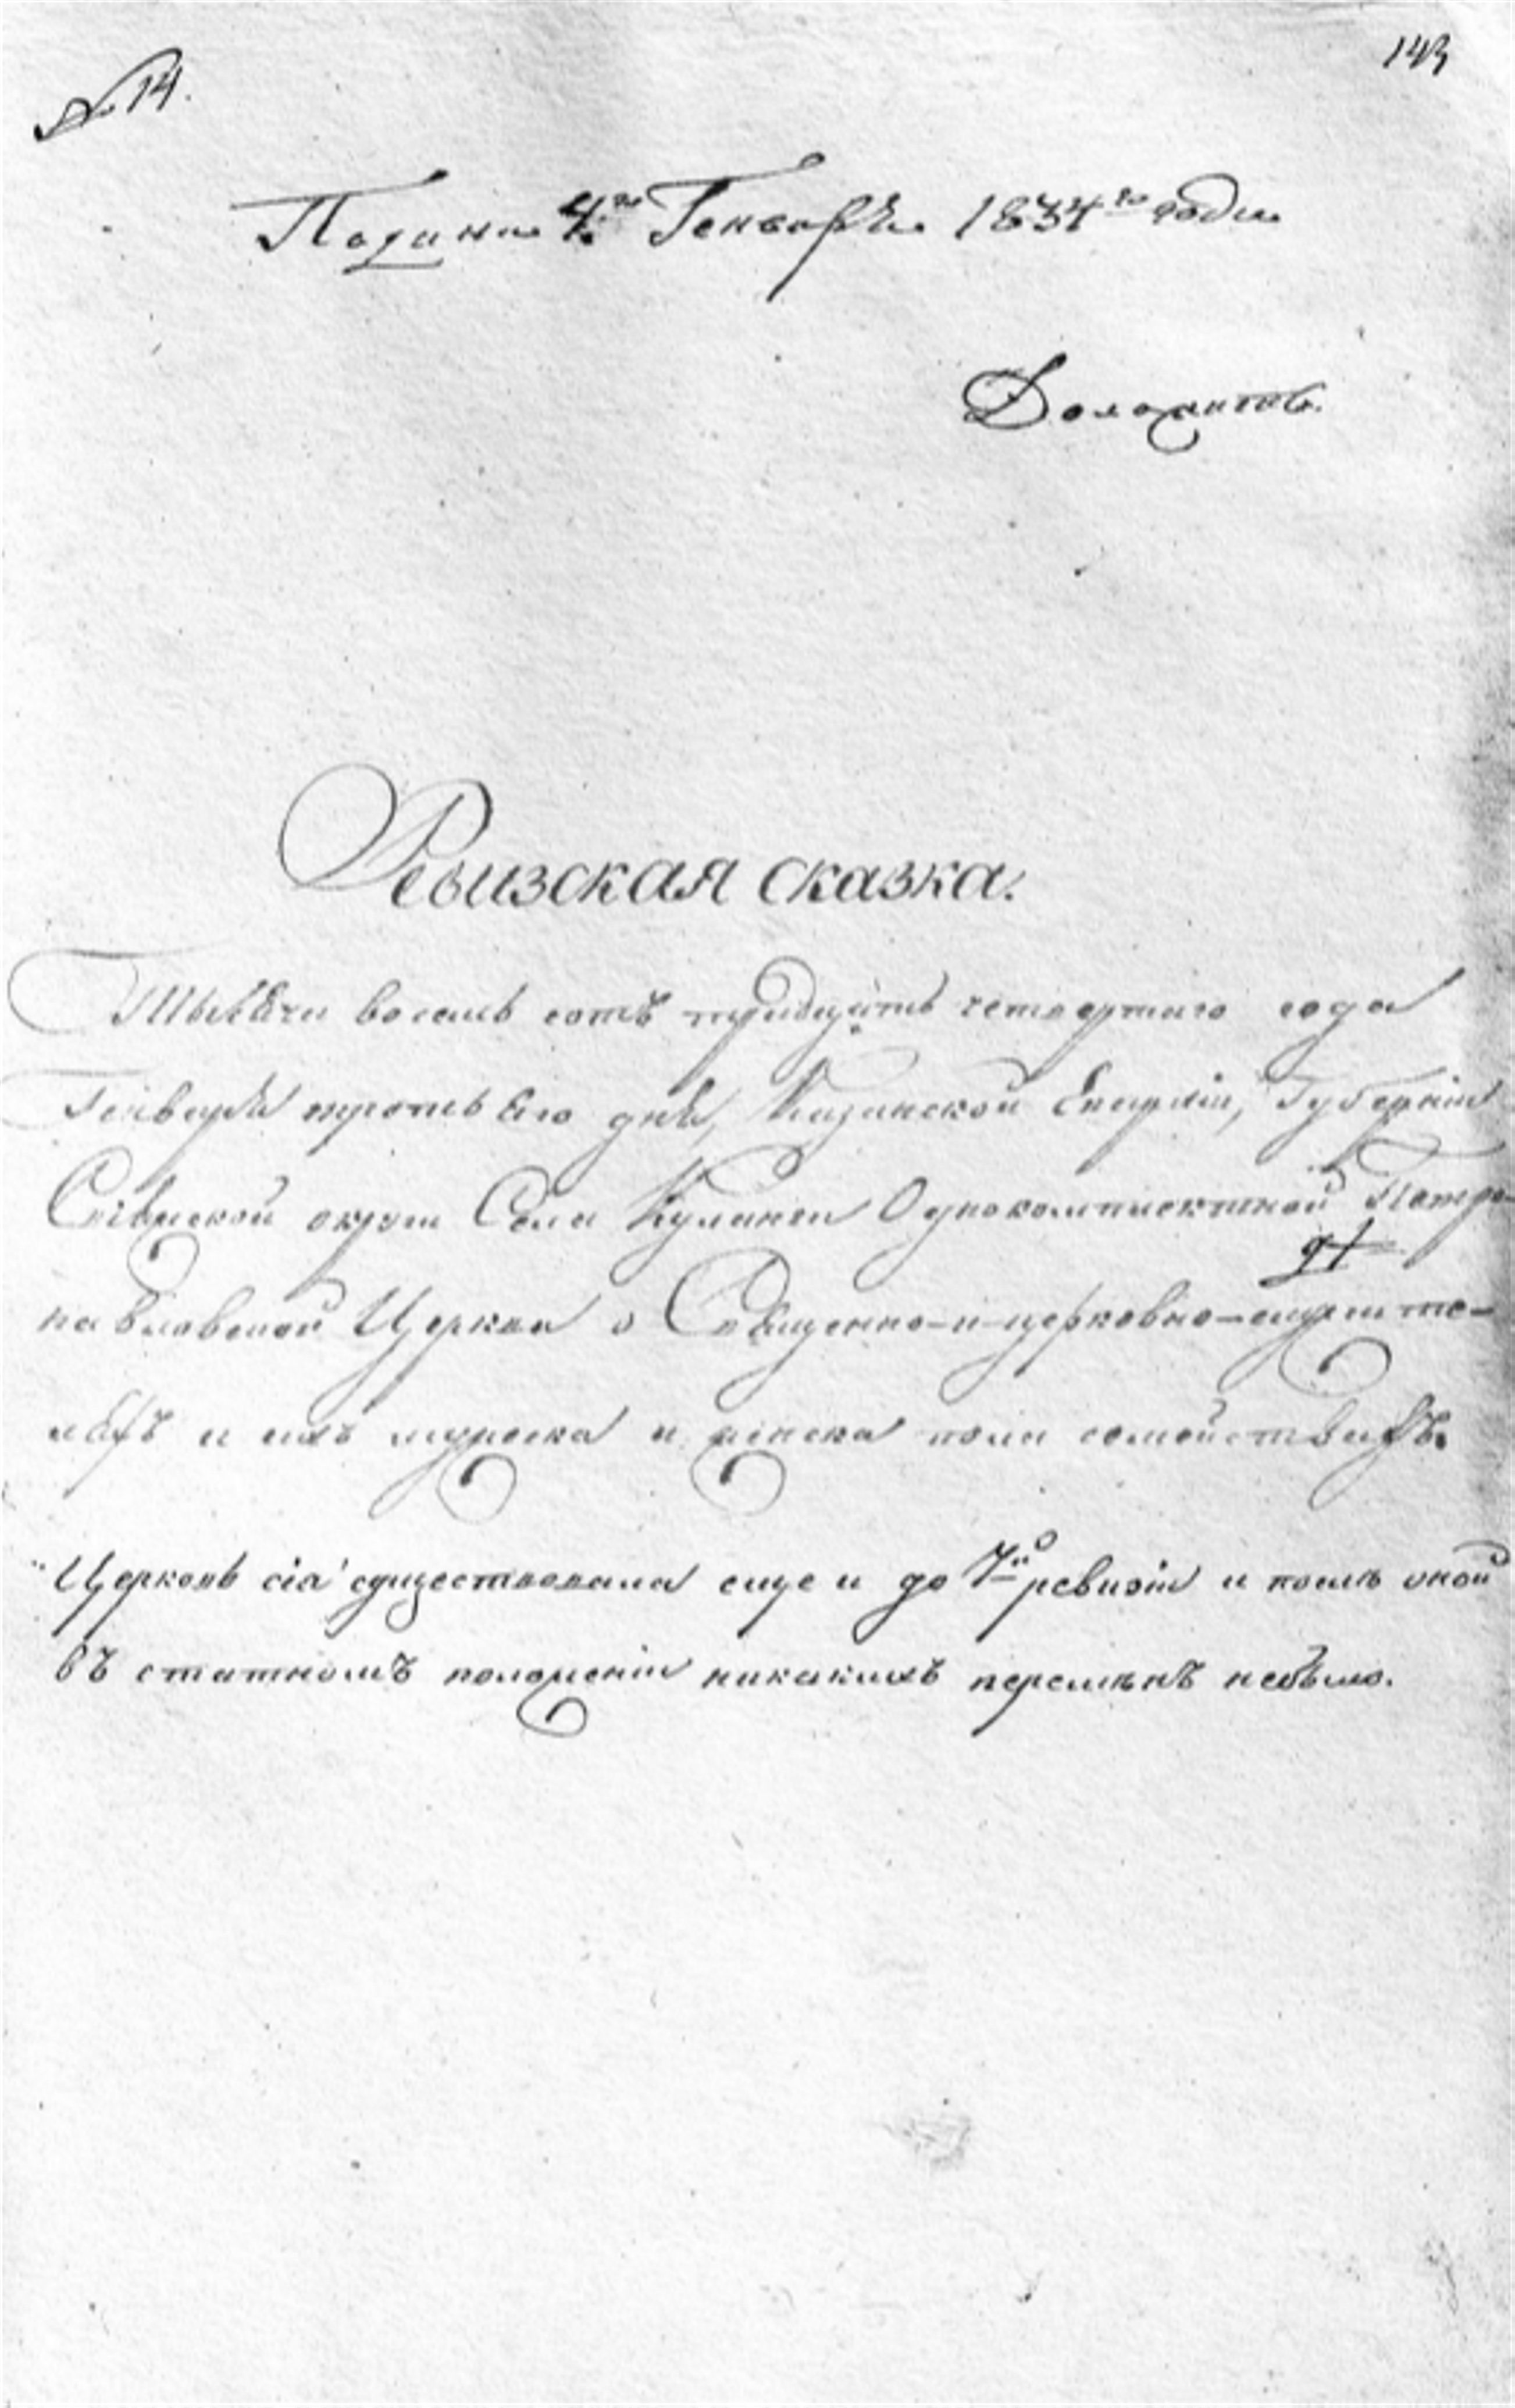 № 14.
143
Подана 4го Генваря 1834го года
Доложить.
Ревизская сказка.
Тысяча восемь сотъ тридцать четвертаго года
Генваря третьяго дня, Казанской Епархіи, Губерніи
округи Села Однокомплектной Петро-
павловской Церкви о Священно-и-церковно-служите-
ляхъ и ихъ мужеска и женска пола семействахъ.
Церковь сія существовала еще и до 7й ревизіи и послѣ оной
въ статномъ положеніи никакихъ перемѣнъ небыло.